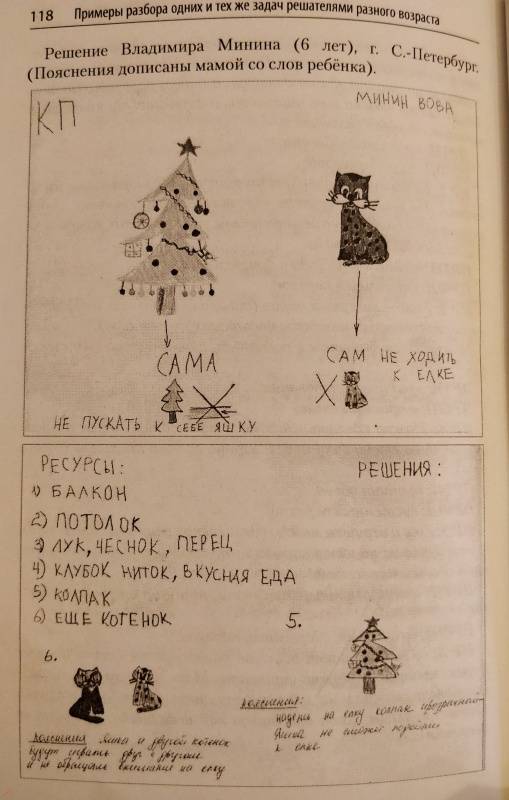 118 Примеры разбора одних и тех же задач решателями разного возраста
Решение Владимира Минина (6 лет), г. С.-Петербург.
(Пояснения дописаны мамой со слов ребёнка).
КП
МИНИН ВОВА
САМА
САМ НЕ ХОДИТЬ
К ЕЛКЕ
НЕ ПУСКАТЬ К СЕБЕ ЯШКУ
РЕСУРСЫ:
РЕШЕНИЯ:
1) БАЛКОН
2) ПОТОЛОК
3) ЛУК, ЧЕСНОК, ПЕРЕЦ
4) КЛУБОК НИТОК, ВКУСНАЯ ЕДА
5) КОЛПАК
6) ЕЩЕ КОТЕНОК
5.
6.
Пояснения: Яшка и другой котенок
будут играть друг с другом
и не обращать внимание на елку
Пояснения:
надеть на елку колпак прозрачный
Яшка не сможет подойти
к елке.